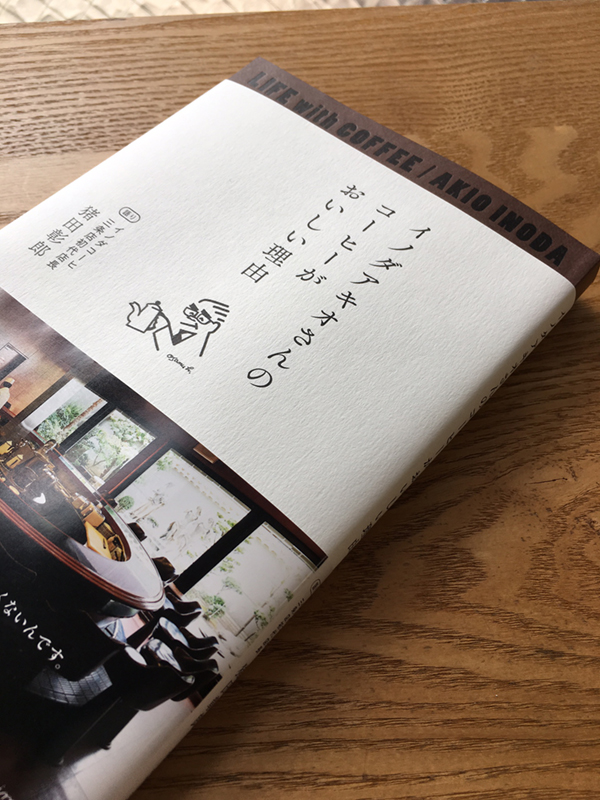 LIFE with COFFEE / AKIO INODA
イノダアキオさんの
コーヒーが
おいしい理由
語り
イノダコーヒ
三条店初代店長
猪田彰郎
くないんです。